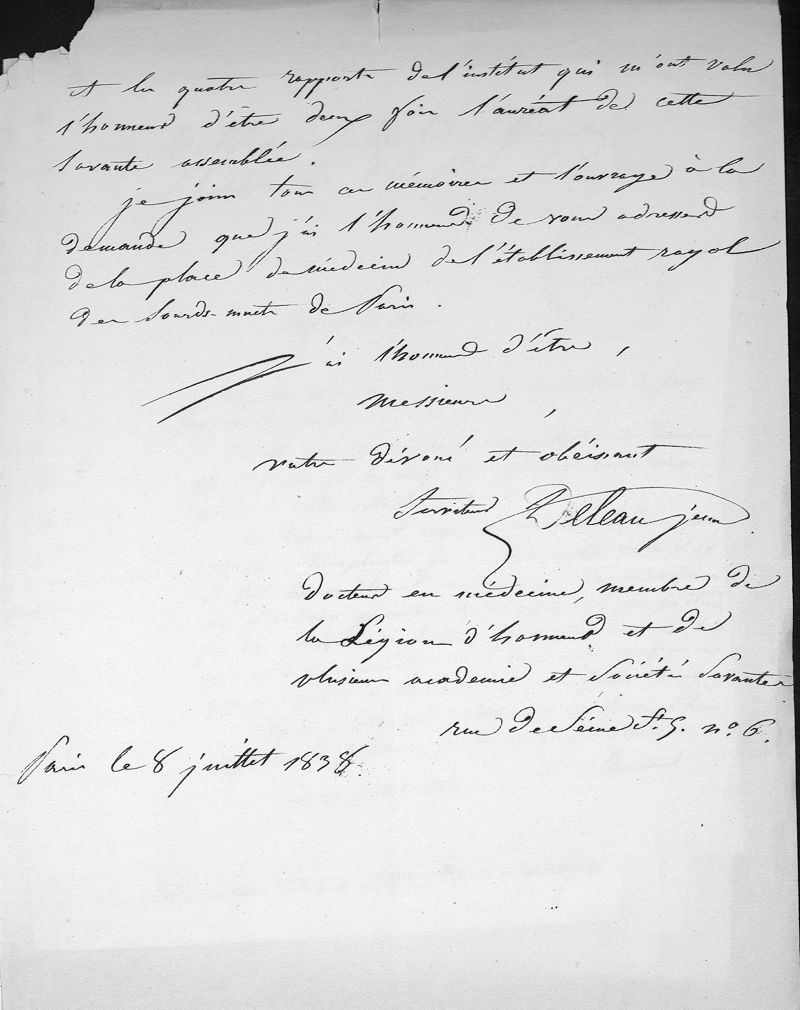 et les quatre rapports de l'institut qui m'ont valu
l'honneur d'être deux fois l'auréat de cette
savante assemblée.
je joins tous ces mémoires et l'ouvrage à la
demande que j'ai l'honneur de vous adresser
de la place de médecin de l'établissement royal
des sourds-muets de Paris.
j'ai l'honneur d'être,
Messieurs,
votre dévoué et obéissant
Serviteur Deleau jeune
docteur en médecine, membre de
la Légion d'honneur et de
plusieurs academies et Sociétés Savantes
rue de Seine St. G. n° 6.
Paris le 8 juillet 1838